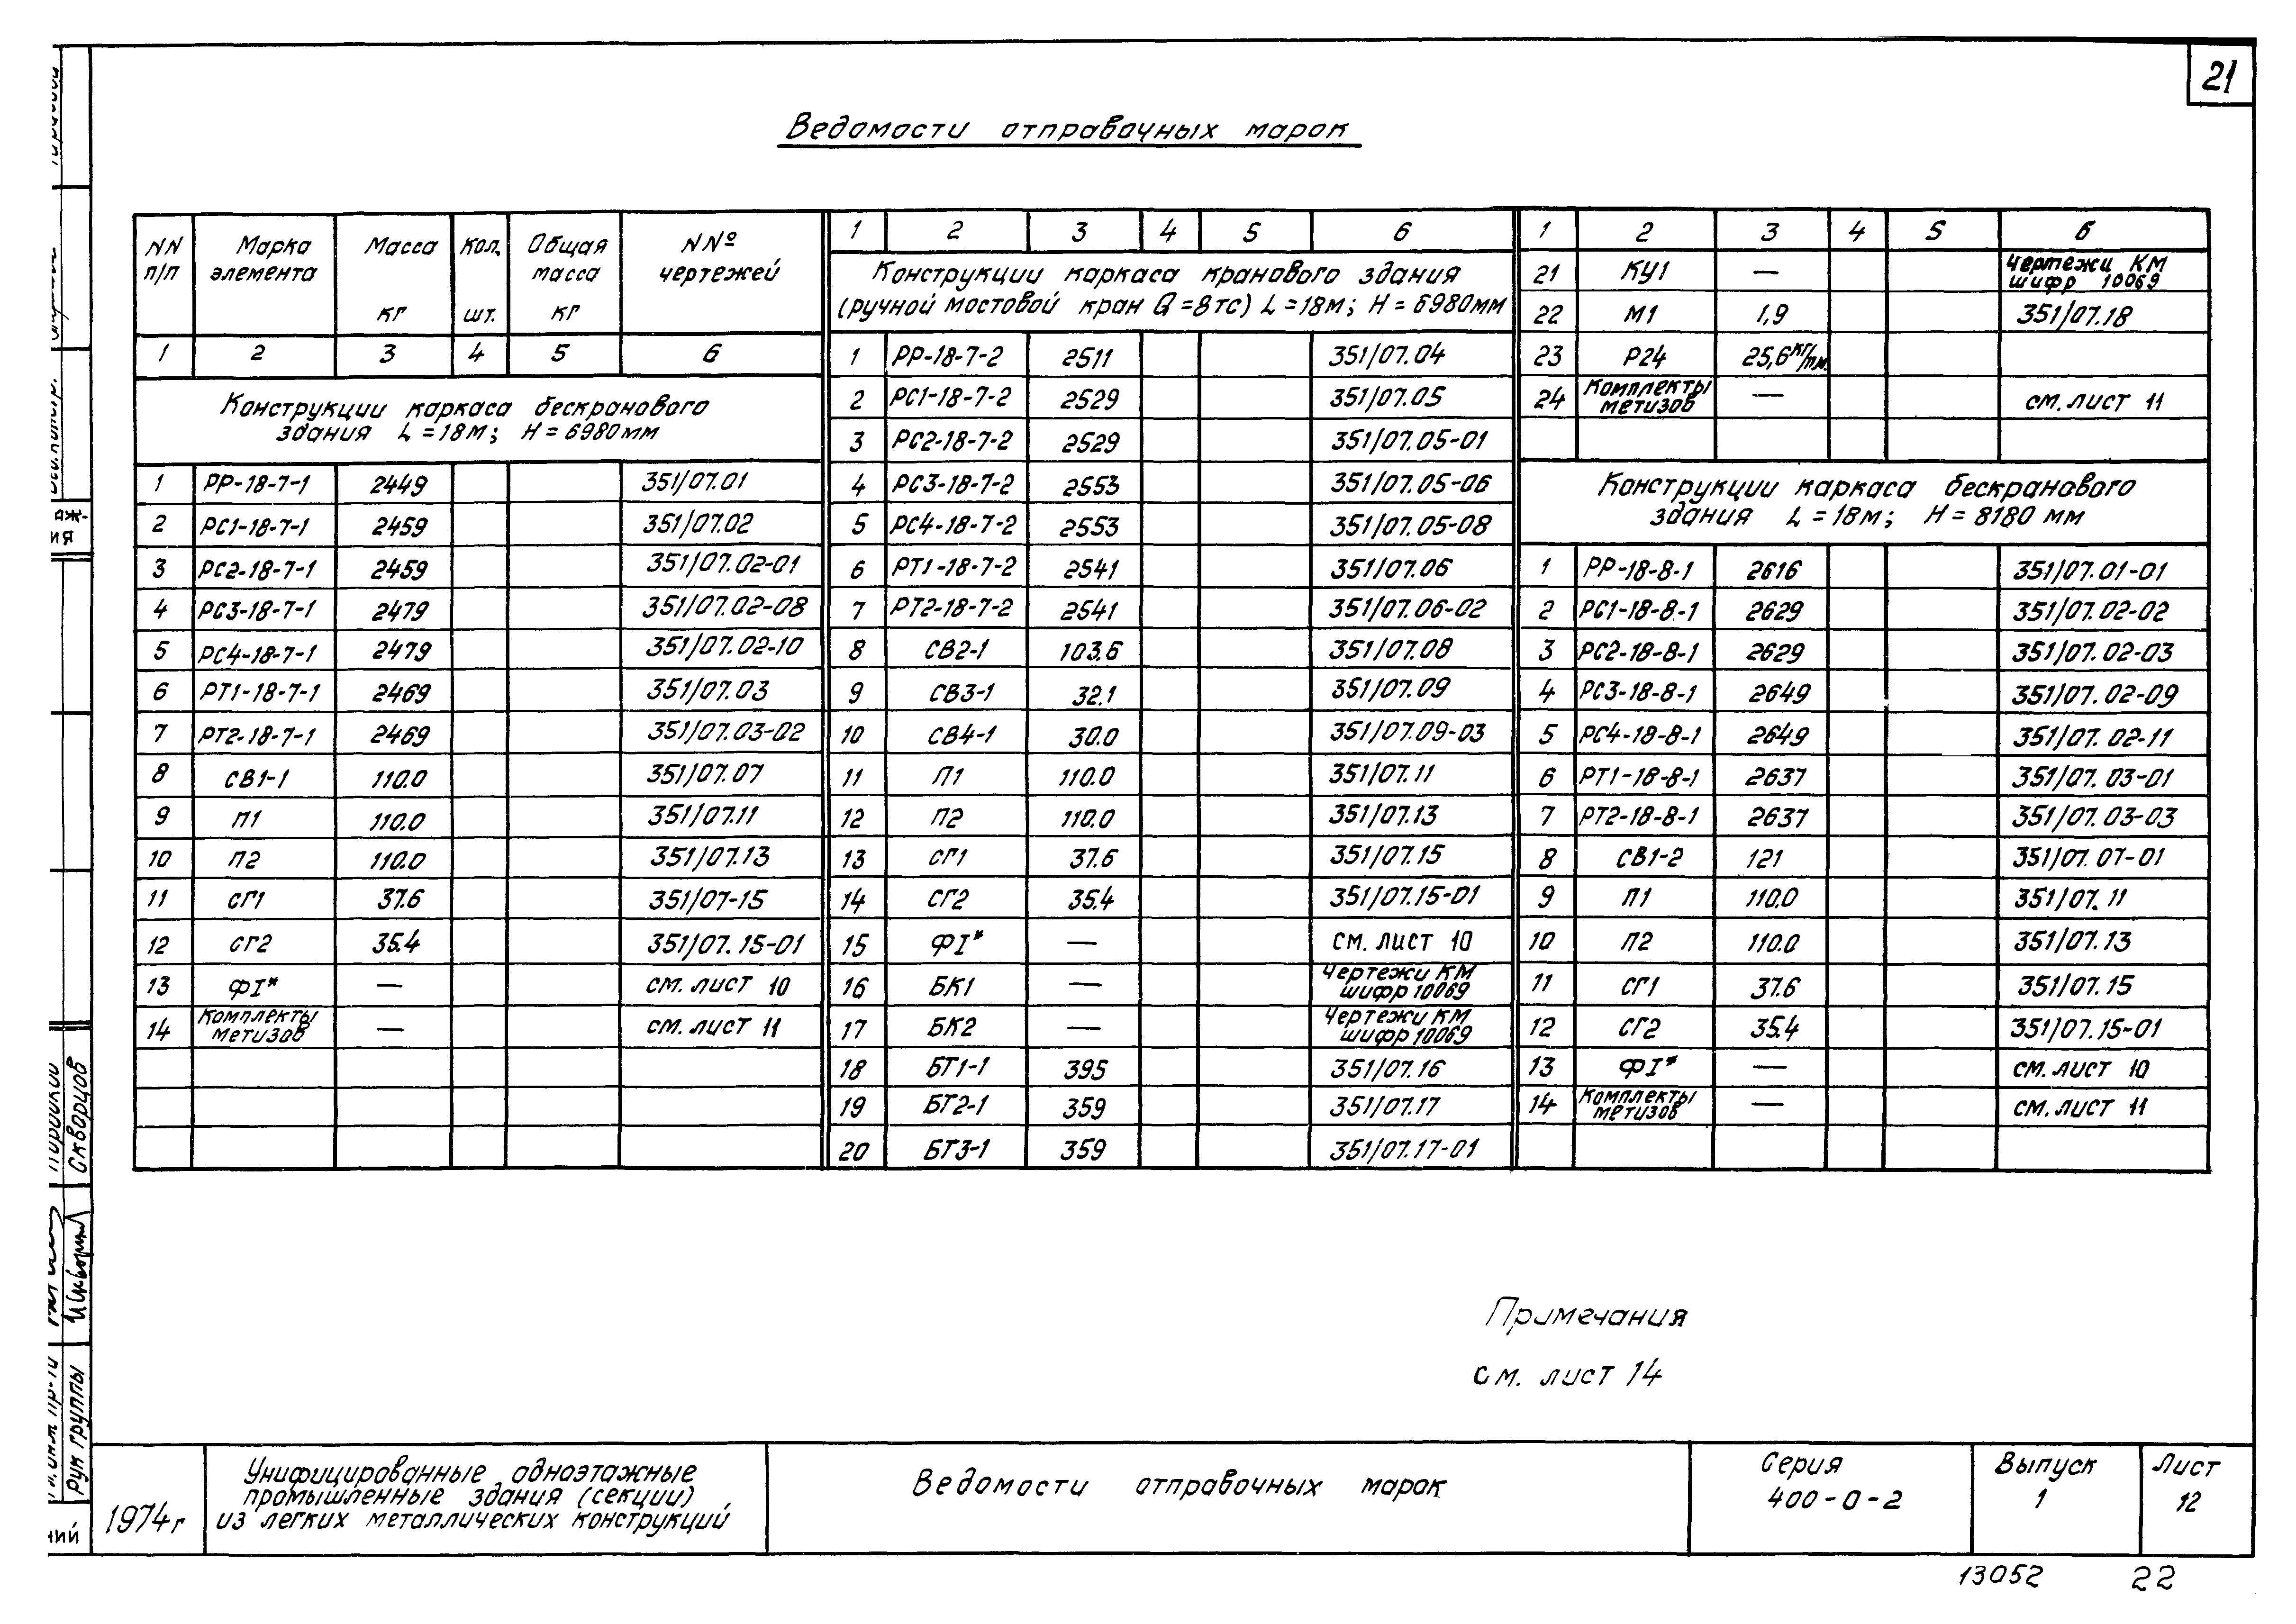 21
Ведомости отправочных марок
NN п/п | Марка элемента | Масса кг | Кол. шт. | Общая масса кг | NNº чертежей
1 | 2 | 3 | 4 | 5 | 6
Конструкции каркаса бескранового
здания L = 18м; H = 6980мм
1 | РР-18-7-1 | 2449 | 351/07.01
2 | РС1-18-7-1 | 2459 | 351/07.02
3 | РС2-18-7-1 | 2459 | 351/07.02-01
4 | РС3-18-7-1 | 2479 | 351/07.02-08
5 | РС4-18-7-1 | 2479 | 351/07.02-10
6 | РТ1-18-7-1 | 2469 | 351/07.03
7 | РТ2-18-7-1 | 2469 | 351/07.03-02
8 | СВ1-1 | 110.0 | 351/07.07
9 | П1 | 110.0 | 351/07.11
10 | П2 | 110.0 | 351/07.13
11 | СГ1 | 37.6 | 351/07-15
12 | СГ2 | 35.4 | 351/07.15-01
13 | ФI* | — | см. лист 10
14 | Комплекты метизов | — | см. лист 11
1 | 2 | 3 | 4 | 5 | 6
Конструкции каркаса кранового здания
(ручной мостовой кран Q = 8тс) L = 18м; H = 6980мм
1 | РР-18-7-2 | 2511 | 351/07.04
2 | РС1-18-7-2 | 2529 | 351/07.05
3 | РС2-18-7-2 | 2529 | 351/07.05-01
4 | РС3-18-7-2 | 2553 | 351/07.05-06
5 | РС4-18-7-2 | 2553 | 351/07.05-08
6 | РТ1-18-7-2 | 2541 | 351/07.06
7 | РТ2-18-7-2 | 2541 | 351/07.06-02
8 | СВ2-1 | 103.6 | 351/07.08
9 | СВ3-1 | 32.1 | 351/07.09
10 | СВ4-1 | 30.0 | 351/07.09-03
11 | П1 | 110.0 | 351/07.11
12 | П2 | 110.0 | 351/07.13
13 | СГ1 | 37.6 | 351/07.15
14 | СГ2 | 35.4 | 351/07.15-01
15 | ФI* | — | см. лист 10
16 | БК1 | — | Чертежи КМ шифр 10069
17 | БК2 | — | Чертежи КМ шифр 10069
18 | БТ1-1 | 395 | 351/07.16
19 | БТ2-1 | 359 | 351/07.17
20 | БТ3-1 | 359 | 351/07.17-01
1 | 2 | 3 | 4 | 5 | 6
21 | КУ1 | — | Чертежи КМ шифр 10069
22 | М1 | 1,9 | 351/07.18
23 | Р24 | 25,6 кг/п.м.
24 | Комплекты метизов | — | см. лист 11
Конструкции каркаса бескранового
здания L = 18м; H = 8180 мм
1 | РР-18-8-1 | 2616 | 351/07.01-01
2 | РС1-18-8-1 | 2629 | 351/07.02-02
3 | РС2-18-8-1 | 2629 | 351/07.02-03
4 | РС3-18-8-1 | 2649 | 351/07.02-09
5 | РС4-18-8-1 | 2649 | 351/07.02-11
6 | РТ1-18-8-1 | 2637 | 351/07.03-01
7 | РТ2-18-8-1 | 2637 | 351/07.03-03
8 | СВ1-2 | 121 | 351/07.07-01
9 | П1 | 110.0 | 351/07.11
10 | П2 | 110.0 | 351/07.13
11 | СГ1 | 37.6 | 351/07.15
12 | СГ2 | 35.4 | 351/07.15-01
13 | ФI* | — | см. лист 10
14 | Комплекты метизов | — | см. лист 11
Примечания
см. лист 14
Рук группы
Скворцов
1974г
Унифицированные одноэтажные
промышленные здания (секции)
из легких металлических конструкций
Ведомости отправочных марок
Серия
400-0-2
Выпуск
1
Лист
12
13052 22